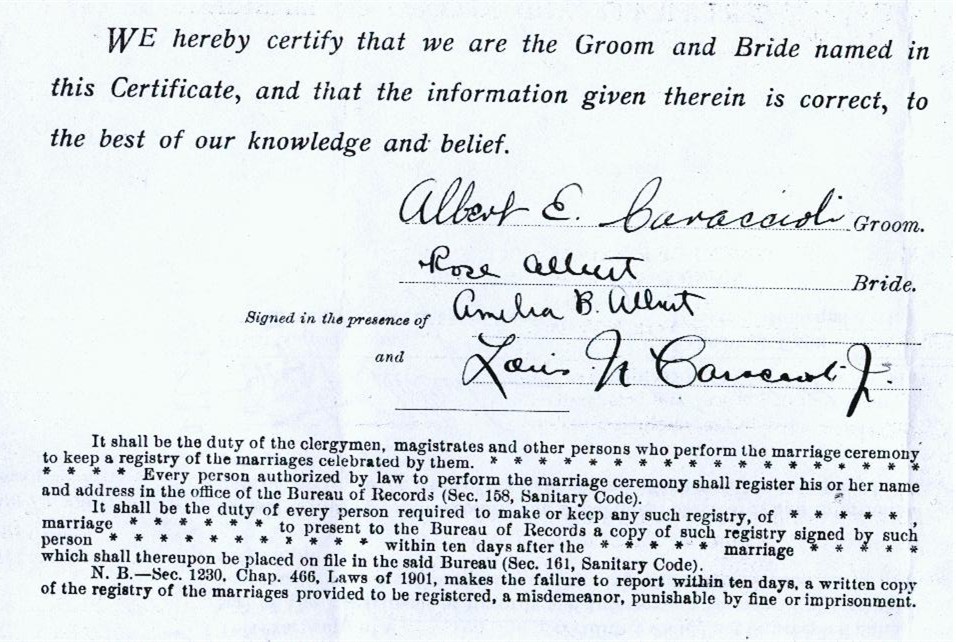 WE hereby certify that we are the Groom and Bride named in
this Certificate, and that the information given therein is correct, to
the best of our knowledge and belief.
Albert E. Caraccioli Groom.
Rose Albert Bride.
Signed in the presence of Amelia B. Albert
and Louis N Caraccioli Jr.
It shall be the duty of the clergymen, magistrates and other persons who perform the marriage ceremony
to keep a registry of the marriages celebrated by them. * * * * * * * * * * * * * * * * * *
* * * * Every person authorized by law to perform the marriage ceremony shall register his or her name
and address in the office of the Bureau of Records (Sec. 158, Sanitary Code).
It shall be the duty of every person required to make or keep any such registry, of * * * * * *
marriage * * * * * * to present to the Bureau of Records a copy of such registry signed by such
person * * * * * * * * * * * within ten days after the * * * * * marriage * * * * *
which shall thereupon be placed on file in the said Bureau (Sec. 161, Sanitary Code).
N. B.—Sec. 1230, Chap. 466, Laws of 1901, makes the failure to report within ten days, a written copy
of the registry of the marriages provided to be registered, a misdemeanor, punishable by fine or imprisonment.